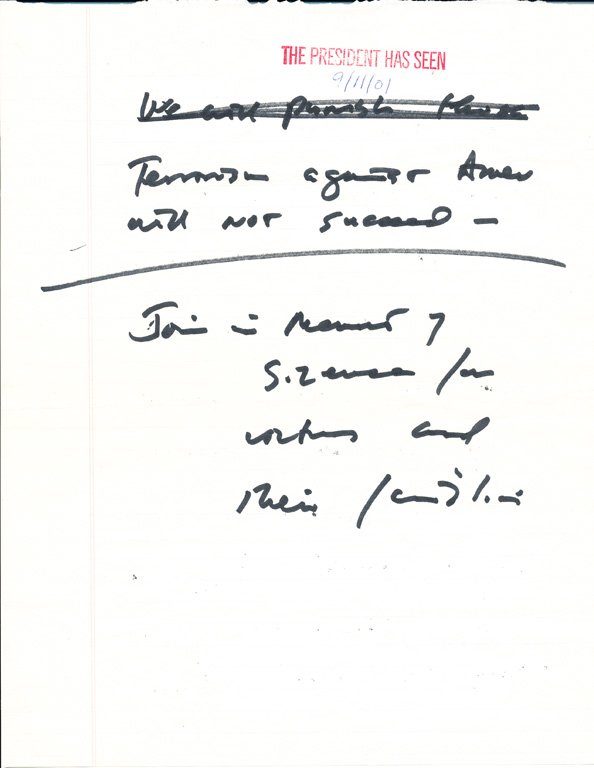 THE PRESIDENT HAS SEEN
9/11/01
We will punish those
Terrorism against Amer
will not succeed —
Join in moment of
Silence for
victims and
their families